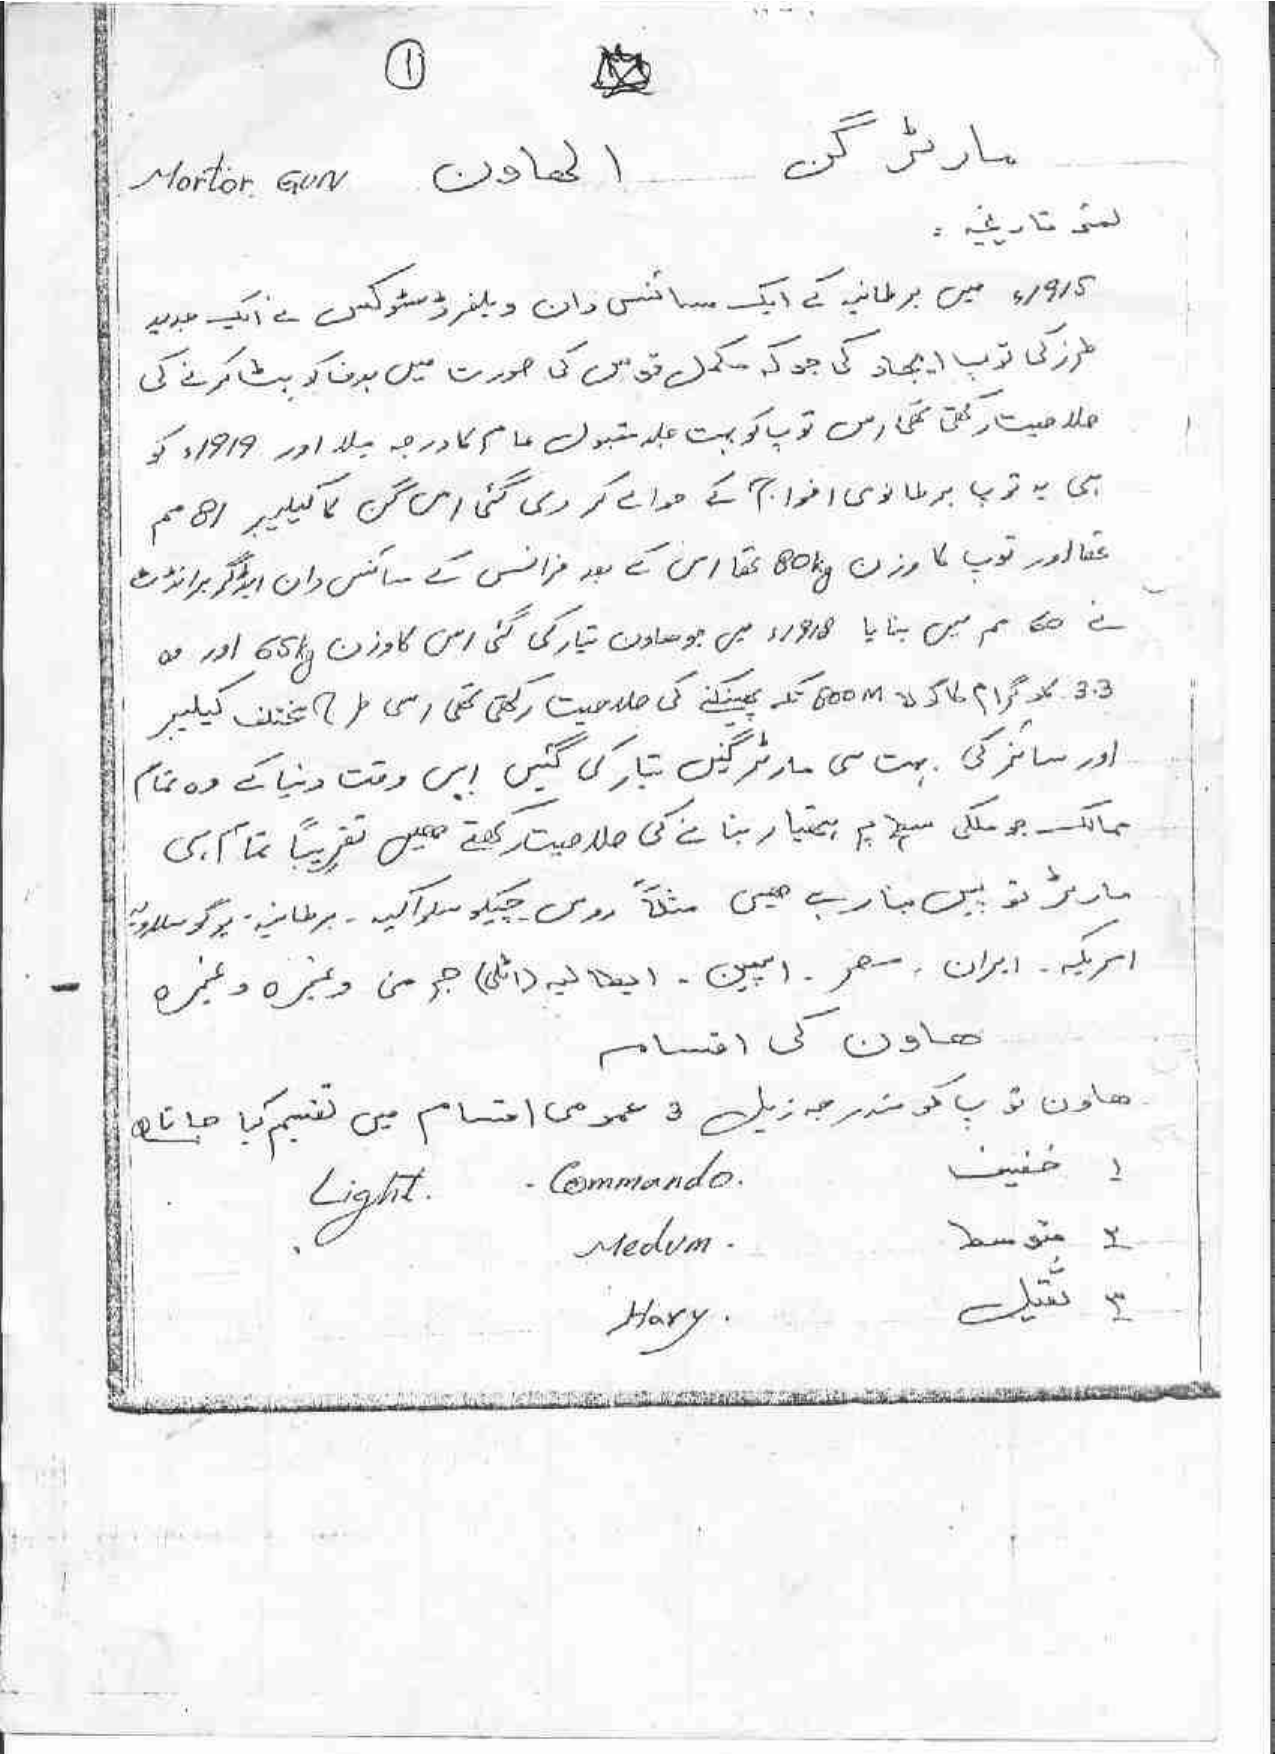 ①
مارٹر گن الهاون Mortor GUN
لمحۃ تاریخیہ :
1915ء میں برطانیہ کے ایک سائنس دان ویلفرڈ سٹوکس نے ایک جدید
طرز کی توپ ایجاد کی جو کہ مکمل قوس کی صورت میں ہدف کو ہٹ کرنے کی
صلاحیت رکھتی تھی اس توپ کو بہت جلد مقبول عام کا درجہ ملا اور 1919ء کو
ہی یہ توپ برطانوی افواج کے حوالے کر دی گئی اس گن کا کیلیبر 81 مم
تھا اور توپ کا وزن 80kg تھا اس کے بعد فرانس کے سائنس دان ایڈگر برانڈٹ
نے 60 مم میں بنایا 1918ء میں جو ھاون تیار کی گئی اس کا وزن 65kg اور وہ
3.3 کلو گرام کا گولا 600M تک پھینکنے کی صلاحیت رکھتی تھی اسی طرح مختلف کیلیبر
اور سائز کی بہت سی مارٹر گنیں تیار کی گئیں اس وقت دنیا کے وہ تمام
ممالک جو ملکی سطح پہ ہتھیار بنانے کی صلاحیت رکھتے ھیں تقریباً تمام ہی
مارٹر توپیں بنا رہے ھیں مثلاً روس چیکوسلواکیہ - برطانیہ - یوگوسلاویہ
امریکہ - ایران - مصر - اسپین - ایطالیہ (اٹلی) جرمنی وغیرہ وغیرہ
ھاون کی اقسام
ھاون توپ کو مندرجہ زیل 3 عمومی اقسام میں تقسیم کیا جاتا ھ
۱ خفیف Commando. Light.
۲ متوسط Medum.
۳ ثقیل Havy.